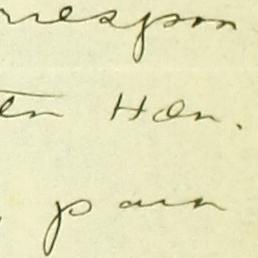 respon
en Hon.
para